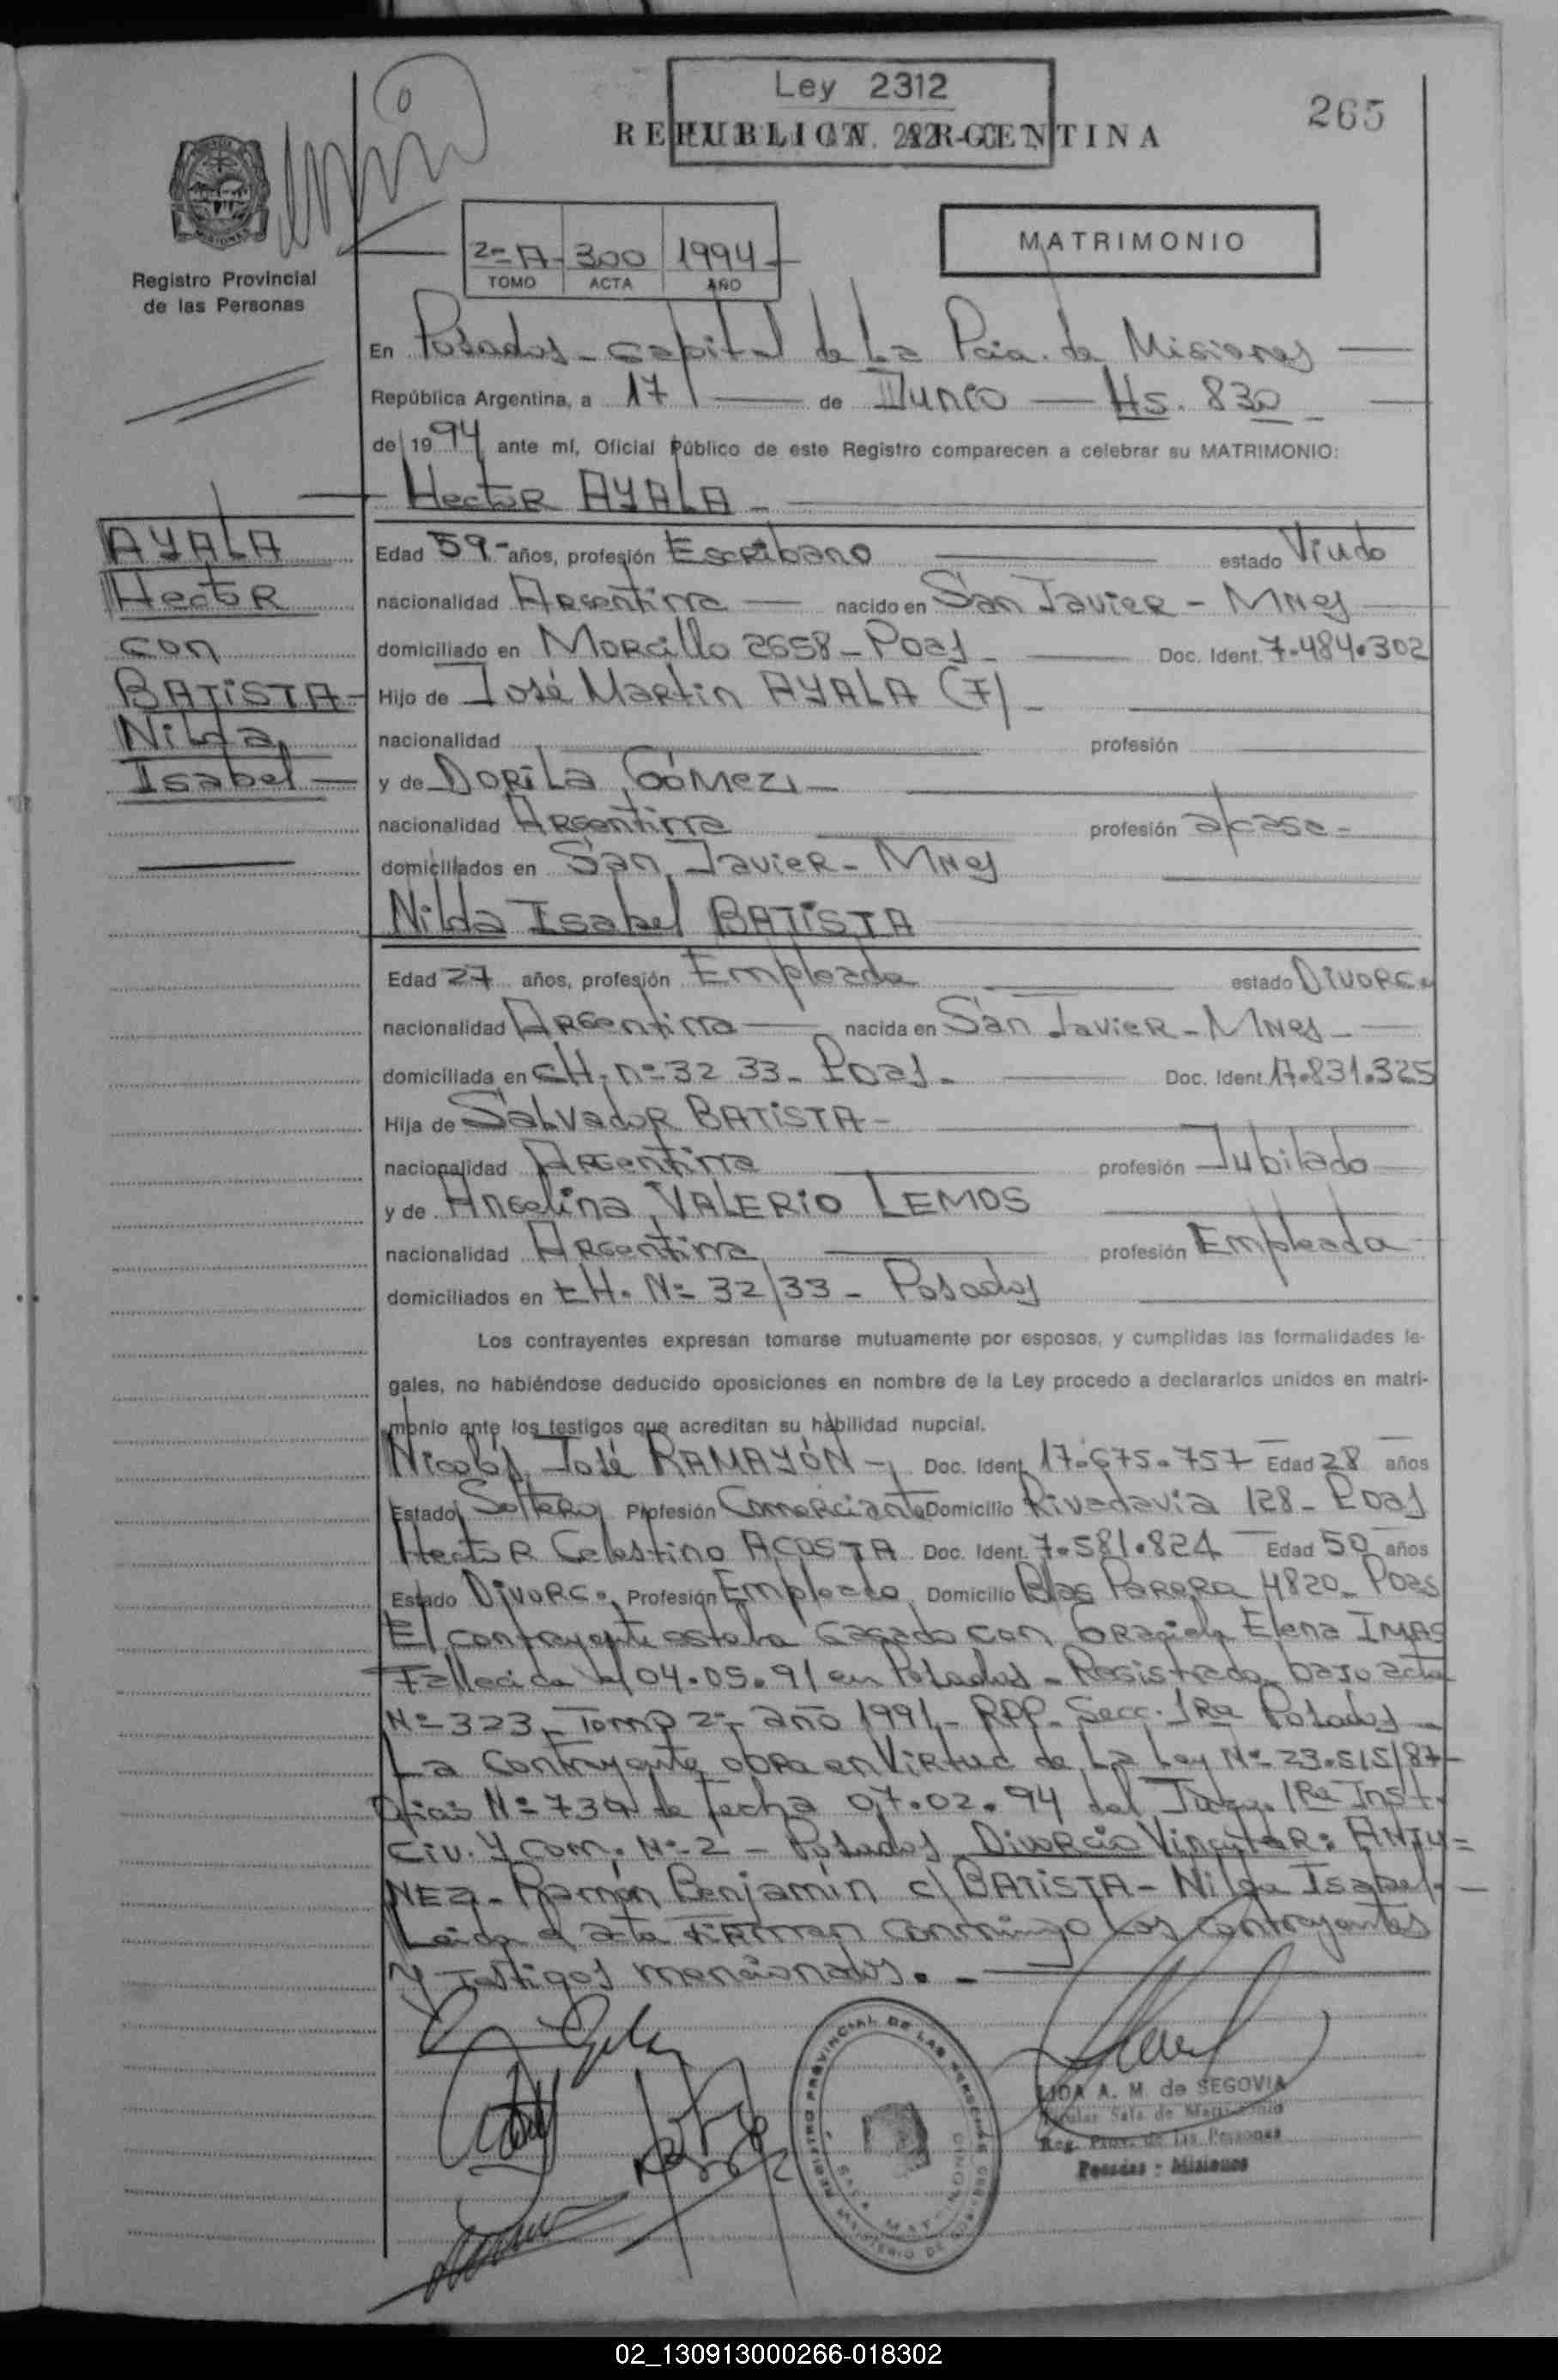 Ley 2312
265
REPUBLICA ARGENTINA
MATRIMONIO
2º A - 300 1994 -
TOMO ACTA AÑO
Registro Provincial
de las Personas
En Posadas - capital de La Pcia. de Misiones
República Argentina, a 17 de Junio Hs. 830
de 1994 ante mí, Oficial Público de este Registro comparecen a celebrar su MATRIMONIO:
Hector AYALA -
AYALA
Hector
con
BATISTA -
Nilda
Isabel -
Edad 59 - años, profesión Escribano estado Viudo
nacionalidad Argentina nacido en San Javier - Mnes
domiciliado en Morcillo 2658 - Poas - Doc. Ident. 7.484.302
Hijo de José Martin AYALA (F) -
nacionalidad profesión
y de Dorila Gómez -
nacionalidad Argentina profesión a/casa -
domiciliados en San Javier - Mnes
Nilda Isabel BATISTA
Edad 27 años, profesión Empleada estado Divorc.
nacionalidad Argentina nacida en San Javier - Mnes -
domiciliada en CH. nº 32 33 - Poas - Doc. Ident. 17.831.325
Hija de Salvador BATISTA -
nacionalidad Argentina profesión Jubilado
y de Angelina VALERIO LEMOS
nacionalidad Argentina profesión Empleada
domiciliados en CH. Nº 32/33 - Posadas
Los contrayentes expresan tomarse mutuamente por esposos, y cumplidas las formalidades le-
gales, no habiéndose deducido oposiciones en nombre de la Ley procedo a declararlos unidos en matri-
monio ante los testigos que acreditan su habilidad nupcial.
Nicolás José RAMAYÓN - Doc. Ident. 17.675.757 Edad 28 años
Estado Soltero Profesión Comerciante Domicilio Rivadavia 128 - Poas
Hector Celestino ACOSTA Doc. Ident. 7.581.824 Edad 50 años
Estado Divorc. Profesión Empleado Domicilio Blas Parera 4820 - Poas
El contrayente estaba casado con Graciela Elena IMAS
Fallecida el 04.05.91 en Posadas - Registrada bajo acta
Nº 323 - Tomo 2º - año 1991 - RPP - Secc. 1Ra Posadas -
La contrayente obra en Virtud de La Ley Nº 23.515/87 -
Oficio Nº 739 de fecha 07.02.94 del Juzg. 1Ra Inst.
Civ. Y Com. Nº 2 - Posadas Divorcio Vincular: ANTU=
NEZ - Ramón Benjamín c/ BATISTA - Nilda Isabel. -
Leida el acta firman conmigo los contrayentes
Y testigos mencionados. -
REGISTRO PROVINCIAL DE LAS PERSONAS
LIDA A. M. de SEGOVIA
Titular Sala de Matrimonio
Reg. Prov. de las Personas
Posadas - Misiones
02_130913000266-018302